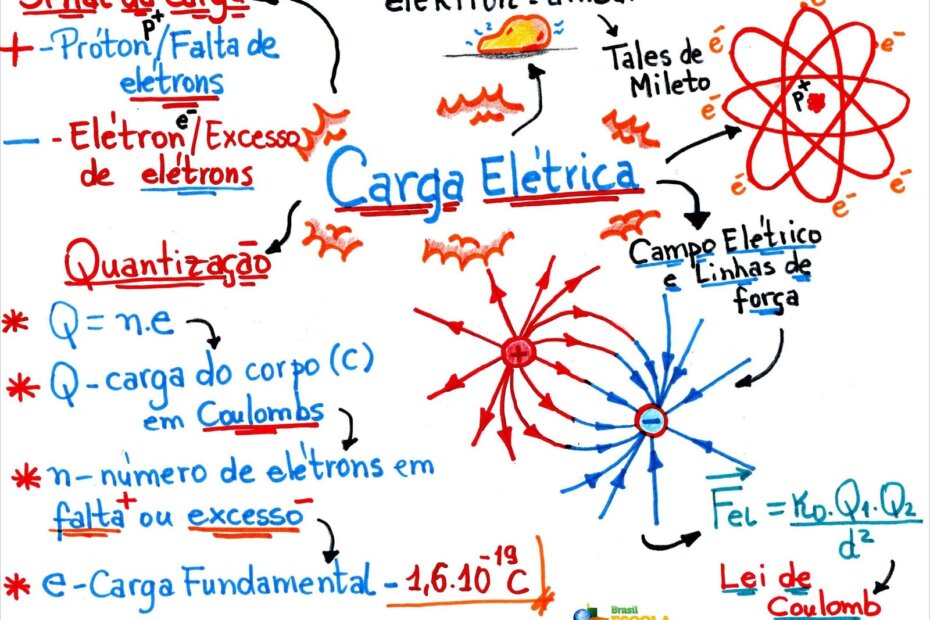 Sinal da Carga
+ - Próton/Falta de
p+
elétrons
e-
— - Elétron/Excesso
de elétrons
Tales de
Mileto
é
é
é
é
e-
e-
e-
p+
Carga Elétrica
Quantização
* Q = n.e
* Q - carga do corpo (C)
em Coulombs
* n - número de elétrons em
falta+ ou excesso-
* e - Carga Fundamental - 1,6.10-19 C
Campo Elétrico
e Linhas de
força
+
-
Fel = K0.Q1.Q2
d2
Lei de
Coulomb
Brasil
ESCOLA